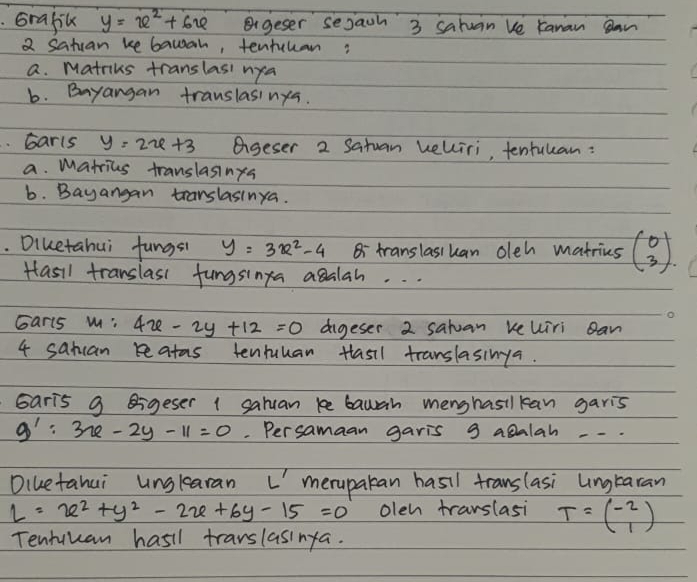 . Grafik y = x² + 6x digeser sejauh 3 satuan ke kanan dan
2 satuan ke bawah, tentukan :
a. Matriks translasi nya
b. Bayangan translasi nya.
. Garis y = 2x + 3 digeser 2 satuan kekiri, tentukan :
a. Matriks translasinya
b. Bayangan translasinya.
. Diketahui fungsi y = 3x² - 4 di translasi kan oleh matriks (0 3).
Hasil translasi fungsinya adalah ...
Garis m : 4x - 2y + 12 = 0 digeser 2 satuan ke kiri dan
4 satuan ke atas tentukan Hasil translasinya.
. Garis g digeser 1 satuan ke bawah menghasilkan garis
g' : 3x - 2y - 11 = 0. Persamaan garis g adalah ---.
Diketahui lingkaran L' merupakan hasil translasi lingkaran
L = x² + y² - 2x + 6y - 15 = 0 oleh translasi T = (-2 1)
Tentukan hasil translasinya.